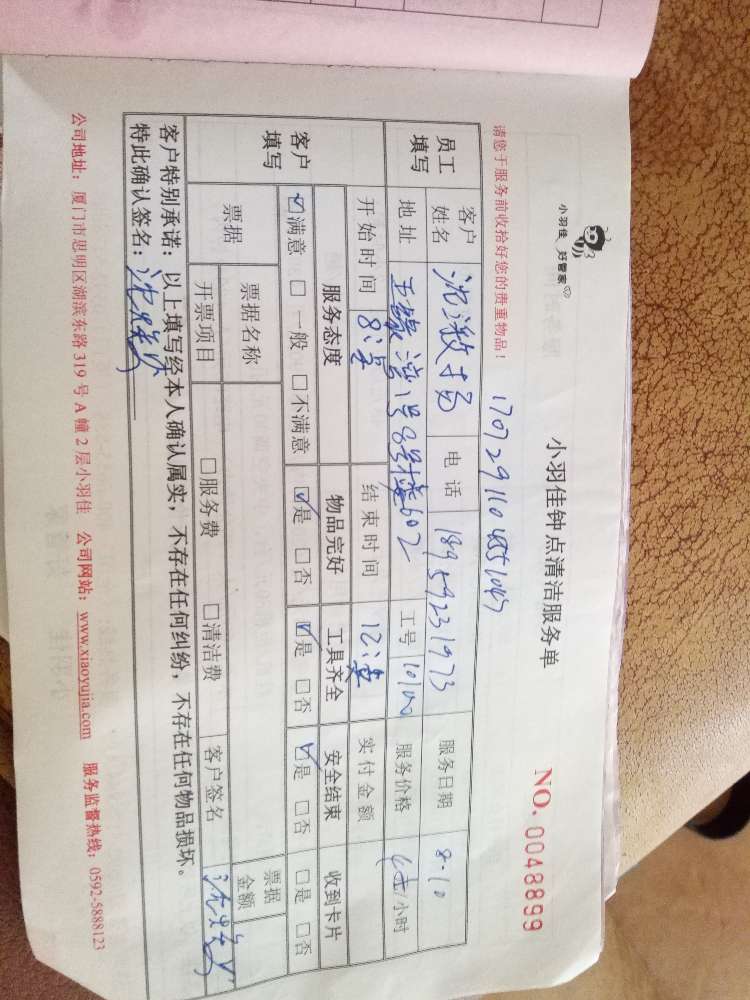 小羽佳 好管家
小羽佳钟点清洁服务单
NO. 0048899
请您于服务前收拾好您的贵重物品!
员工填写 客户姓名 沈激扬 电话 18959231973 服务日期 8-10
地址 1号8号楼602 工号 服务价格 /小时
开始时间 8:定 结束时间 12:定 实付金额
客户填写 服务态度 物品完好 工具齐全 安全结束 收到卡片
☑满意 □一般 □不满意 ☑是 □否 ☑是 □否 ☑是 □否 □是 □否
票据 票据名称 票据金额
开票项目 □服务费 □清洁费 客户签名
客户特别承诺:以上填写经本人确认属实,不存在任何纠纷,不存在任何物品损坏。
特此确认签名:
公司地址:厦门市思明区湖滨东路319号A幢2层小羽佳 公司网站:www.xiaoyujia.com 服务监督热线:0592-5888123